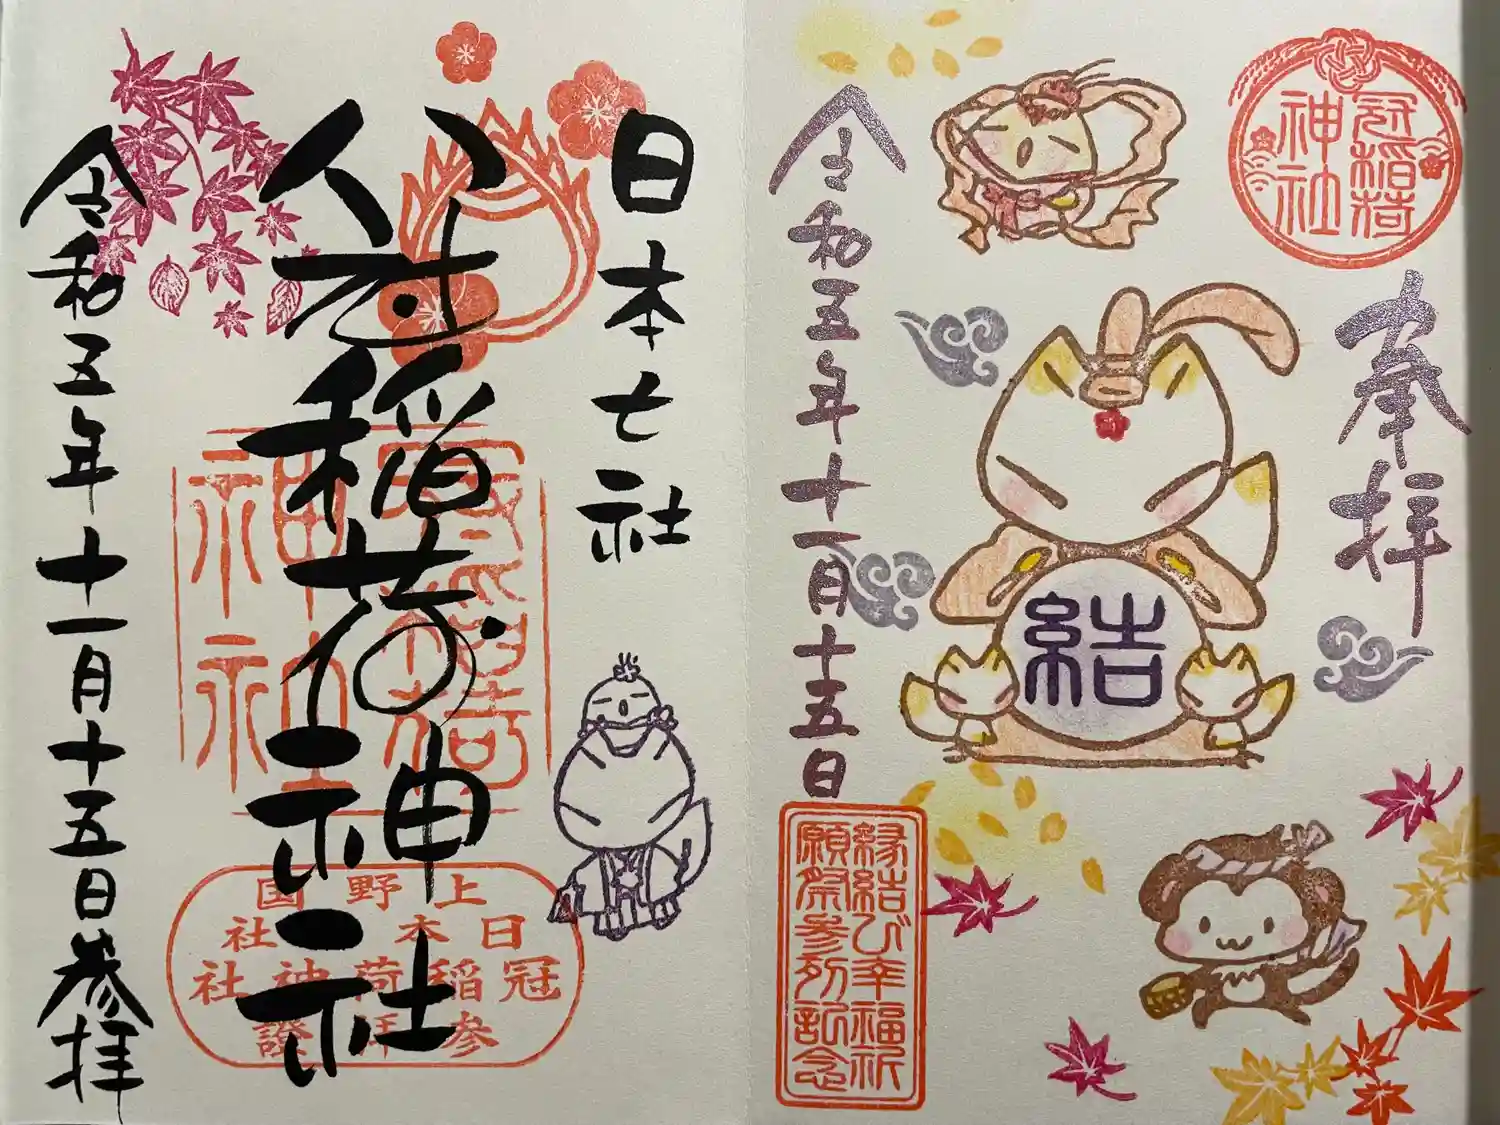 冠稲荷
神社
奉拝
結
令和五年十一月十五日
縁結び幸福祈
願祭参列記念
日本七社
冠稲荷神社
上野国
日本七社
冠稲荷神社
参拝證
令和五年十一月十五日参拝